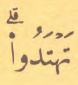 تَهْتَدُوا۟ۗ